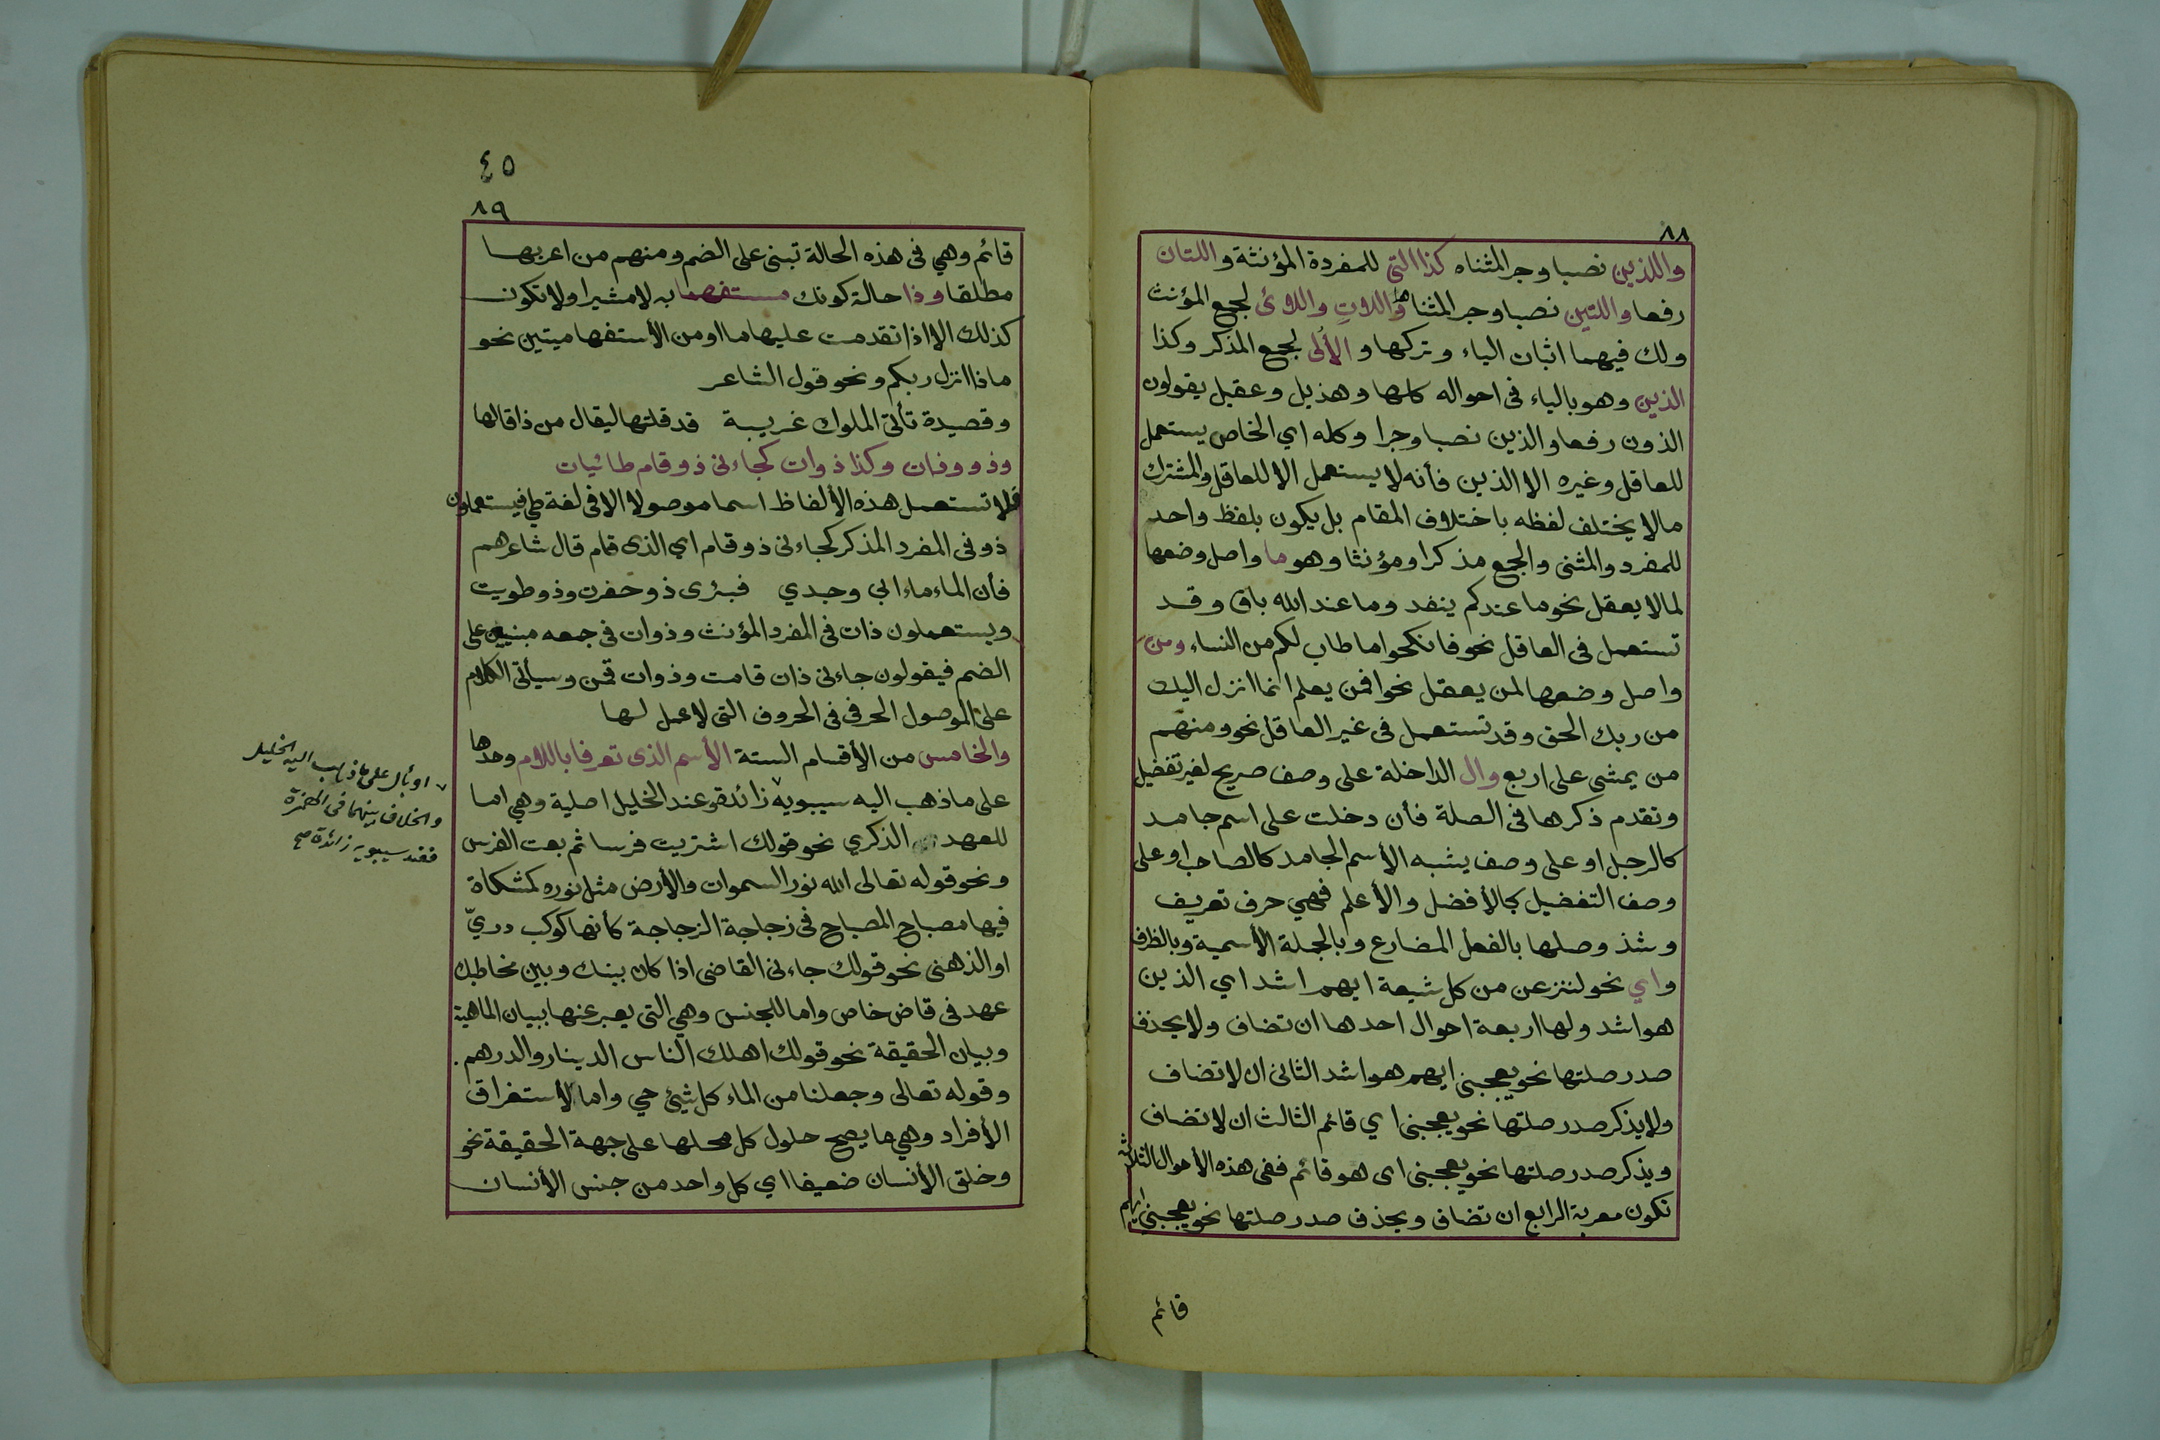 ٨٨
واللذين نصبا وجر المثناه كذا التي للمفردة المؤنثة واللتان
رفعا واللتين نصبا وجر المثناها واللات واللائ لجمع المؤنث
ولك فيهما اثبات الياء وتركها و الألى لجمع المذكر وكذا
الذين وهو بالياء فى احواله كلها وهذيل وعقيل يقولون
الذون رفعا والذين نصبا وجرا وكله اي الخاص يستعمل
للعاقل وغيره الا الذين فأنه لا يستعمل الا للعاقل والمشترك
ما لا يختلف لفظه باختلاف المقام بل يكون بلفظ واحد
للمفرد والمثنى والجمع مذكرا ومؤنثا وهو ما واصل وضعها
لما لا يعقل نحو ما عندكم ينفد وما عند الله باق وقد
تستعمل فى العاقل نحو فانكحوا ما طاب لكم من النساء ومن
واصل وضعها لمن يعقل نحو افمن يعلم انما انزل اليك
من ربك الحق وقد تستعمل فى غير العاقل نحو ومنهم
من يمشى على اربع وال الداخلة على وصف صريح لغير تفضيل
وتقدم ذكرها فى الصلة فأن دخلت على اسم جامد
كالرجل او على وصف يشبه الأسم الجامد كالصاحب او على
وصف التفضيل كالأفضل والأعلم فهي حرف تعريف
وشذ وصلها بالفعل المضارع وبالجملة الأسمية وبالظرف
واي نحو لننزعن من كل شيعة ايهم اشد اي الذين
هو اشد ولها اربعة احوال احدها ان تضاف ولا يحذف
صدر صلتها نحو يعجبنى ايهم هو اشد الثانى ان لا تضاف
ولا يذكر صدر صلتها نحو يعجبنى اي قائم الثالث ان لا تضاف
ويذكر صدر صلتها نحو يعجبنى اى هو قائم ففى هذه الأحوال الثلاثة
تكون معربة الرابع ان تضاف ويحذف صدر صلتها نحو يعجبنى ايهم
قائم
٤٥
٨٩
قائم وهي فى هذه الحالة تبنى على الضم ومنهم من اعربها
مطلقا وذا حالة كونك مستفهما به لا مشيرا ولا تكون
كذلك الا اذا تقدمت عليها ما او من الأستفهاميتين نحو
ماذا انزل ربكم ونحو قول الشاعر
وقصيدة تأتى الملوك غريبة قد قلتها ليقال من ذا قالها
وذو وذات وكذا ذوات كجاءنى ذو قام طائيات
فلا تستعمل هذه الألفاظ اسما موصولا الا فى لغة طي فيستعملون
ذو فى المفرد المذكر كجاءنى ذو قام اي الذى قام قال شاعرهم
فأن الماء ماء ابي وجدي فبئرى ذو حفرت وذو طويت
ويستعملون ذات فى المفرد المؤنث وذوات فى جمعه مبنيين على
الضم فيقولون جاءنى ذات قامت وذوات قمن وسيأتى الكلام
على الموصول الحرفى فى الحروف التى لا عمل لها
والخامس من الأقسام الستة الأسم الذى تعرفا باللام وحدها
على ما ذهب اليه سيبويه زائدة وعند الخليل اصلية وهي اما
للعهد الذكري نحو قولك اشتريت فرسا ثم بعت الفرس
ونحو قوله تعالى الله نور السموات والأرض مثل نوره كمشكاة
فيها مصباح المصباح فى زجاجة الزجاجة كأنها كوكب دريّ
او الذهنى نحو قولك جاءنى القاضى اذا كان بينك وبين مخاطبك
عهد فى قاض خاص واما للجنس وهي التى يعبر عنها ببيان الماهية
وبيان الحقيقة نحو قولك اهلك الناس الدينار والدرهم.
وقوله تعالى وجعلنا من الماء كل شيئ حي واما لأستغراق
الأفراد وهي ما يصح حلول كل محلها على جهة الحقيقة نحو
وخلق الأنسان ضعيفا اي كل واحد من جنس الأنسان
او بأل على ما ذهب اليه الخليل
والخلاف بينهما فى الهمزة
فعند سيبويه زائدة صح